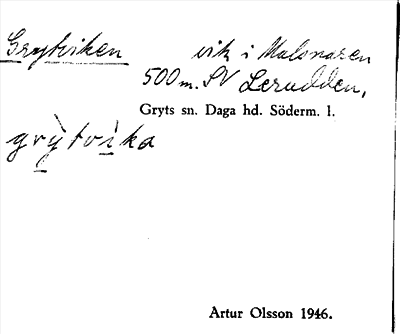 Grytviken vik i Malsnaren
500 m. SV Lerudden,
Gryts sn. Daga hd. Söderm. l.
grỳtvìka
Artur Olsson 1946.